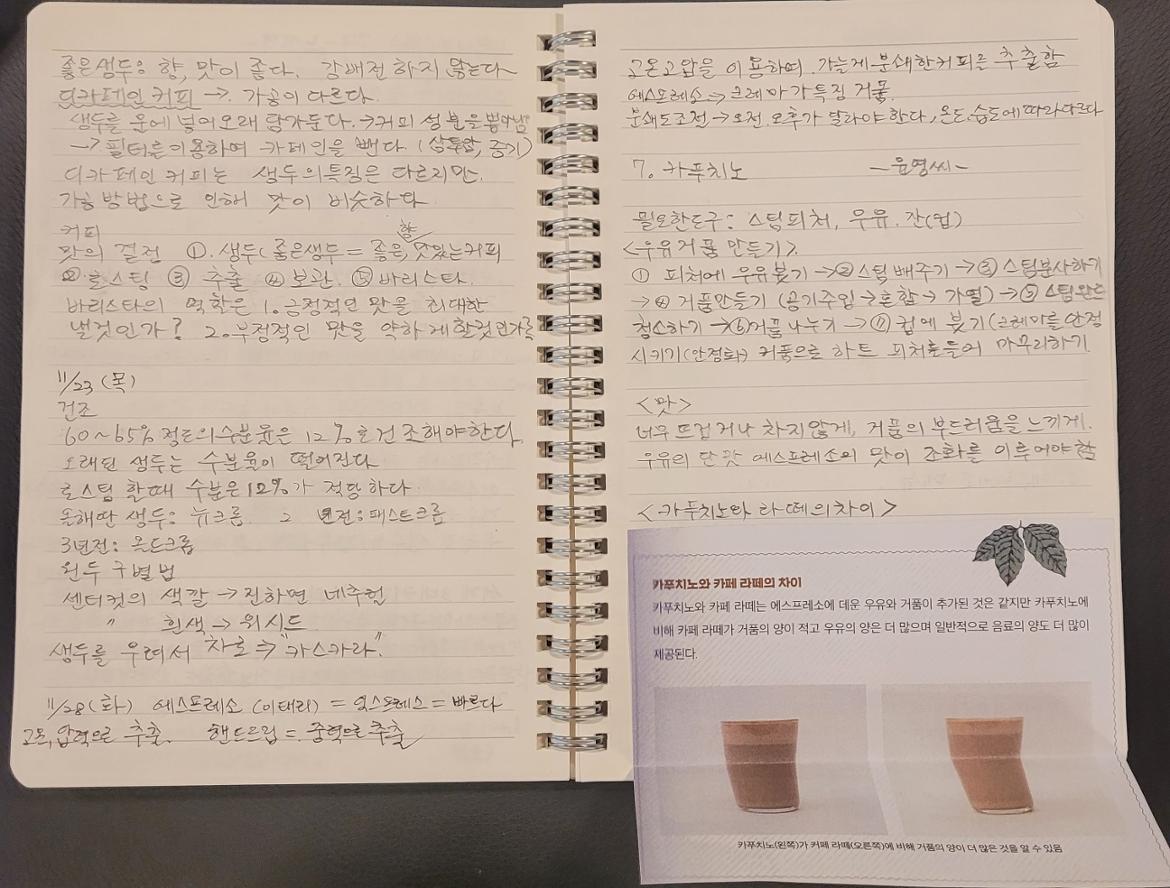 좋은생두: 향, 맛이 좋다. 강배전 하지 않는다
디카페인 커피 → 가공이 다르다.
생두를 물에 넣어 오래 담가둔다. → 커피 성분을 뽑아냄
→ 필터를 이용하여 카페인을 뺀다 (증기)
디카페인 커피는 생두의 특징은 다르지만.
가공방법으로 인해 맛이 비슷하다
커피 향
맛의 결정 ①. 생두(좋은생두 = 좋은, 맛있는커피
② 로스팅 ③ 추출 ④ 보관. ⑤ 바리스타.
바리스타의 역할은 1. 긍정적인 맛을 최대한
낼것인가? 2. 부정적인 맛을 약하게할것인가를
11/23 (목)
건조
60~65% 정도의수분율은 12%로건조해야한다.
오래된 생두는 수분율이 떨어진다
로스팅 할때 수분은 12%가 적당하다
올해딴 생두: 뉴크롭. 2 년전: 패스트크롭
3년전: 올드크롭
원두 구별법
센터컷의 색깔 → 진하면 네추럴
〃 흰색 → 워시드
생두를 우려서 차로 ⇒ "카스카라."
11/28 (화) 에스프레소 (이태리) = 익스프레스 = 빠르다
고온, 압력으로 추출. 핸드드립 = 중력으로 추출
고온고압을 이용하여. 가늘게분쇄한커피를 추출함
에스프레소 → 크레마가특징 거품.
분쇄도조절 → 오전. 오후가 달라야한다, 온도.습도에따라다르다
7. 카푸치노 -윤영씨-
필요한도구: 스팀피쳐, 우유. 잔(컵)
<우유거품 만들기>.
① 피쳐에 우유붓기 → ② 스팀 빼주기 → ③ 스팀분사하기
→ ④ 거품만들기 (공기주입 → 혼합 → 가열) → ⑤ 스팀완드
청소하기 → ⑥ 거품 나누기 → ⑦ 컵에 붓기 (크레마를 안정
시키기(안정화) 거품으로 하트 피쳐를들어 마무리하기.
<맛>
너무 뜨겁거나 차지않게, 거품의 부드러움을 느끼게.
우유의 단맛 에스프레소의 맛이 조화를 이루어야함
<카푸치노와 라떼의차이>
카푸치노와 카페 라떼의 차이
카푸치노와 카페 라떼는 에스프레소에 데운 우유와 거품이 추가된 것은 같지만 카푸치노에
비해 카페 라떼가 거품의 양이 적고 우유의 양은 더 많으며 일반적으로 음료의 양도 더 많이
제공된다.
카푸치노(왼쪽)가 커페 라떼(오른쪽)에 비해 거품의 양이 더 많은 것을 알 수 있음